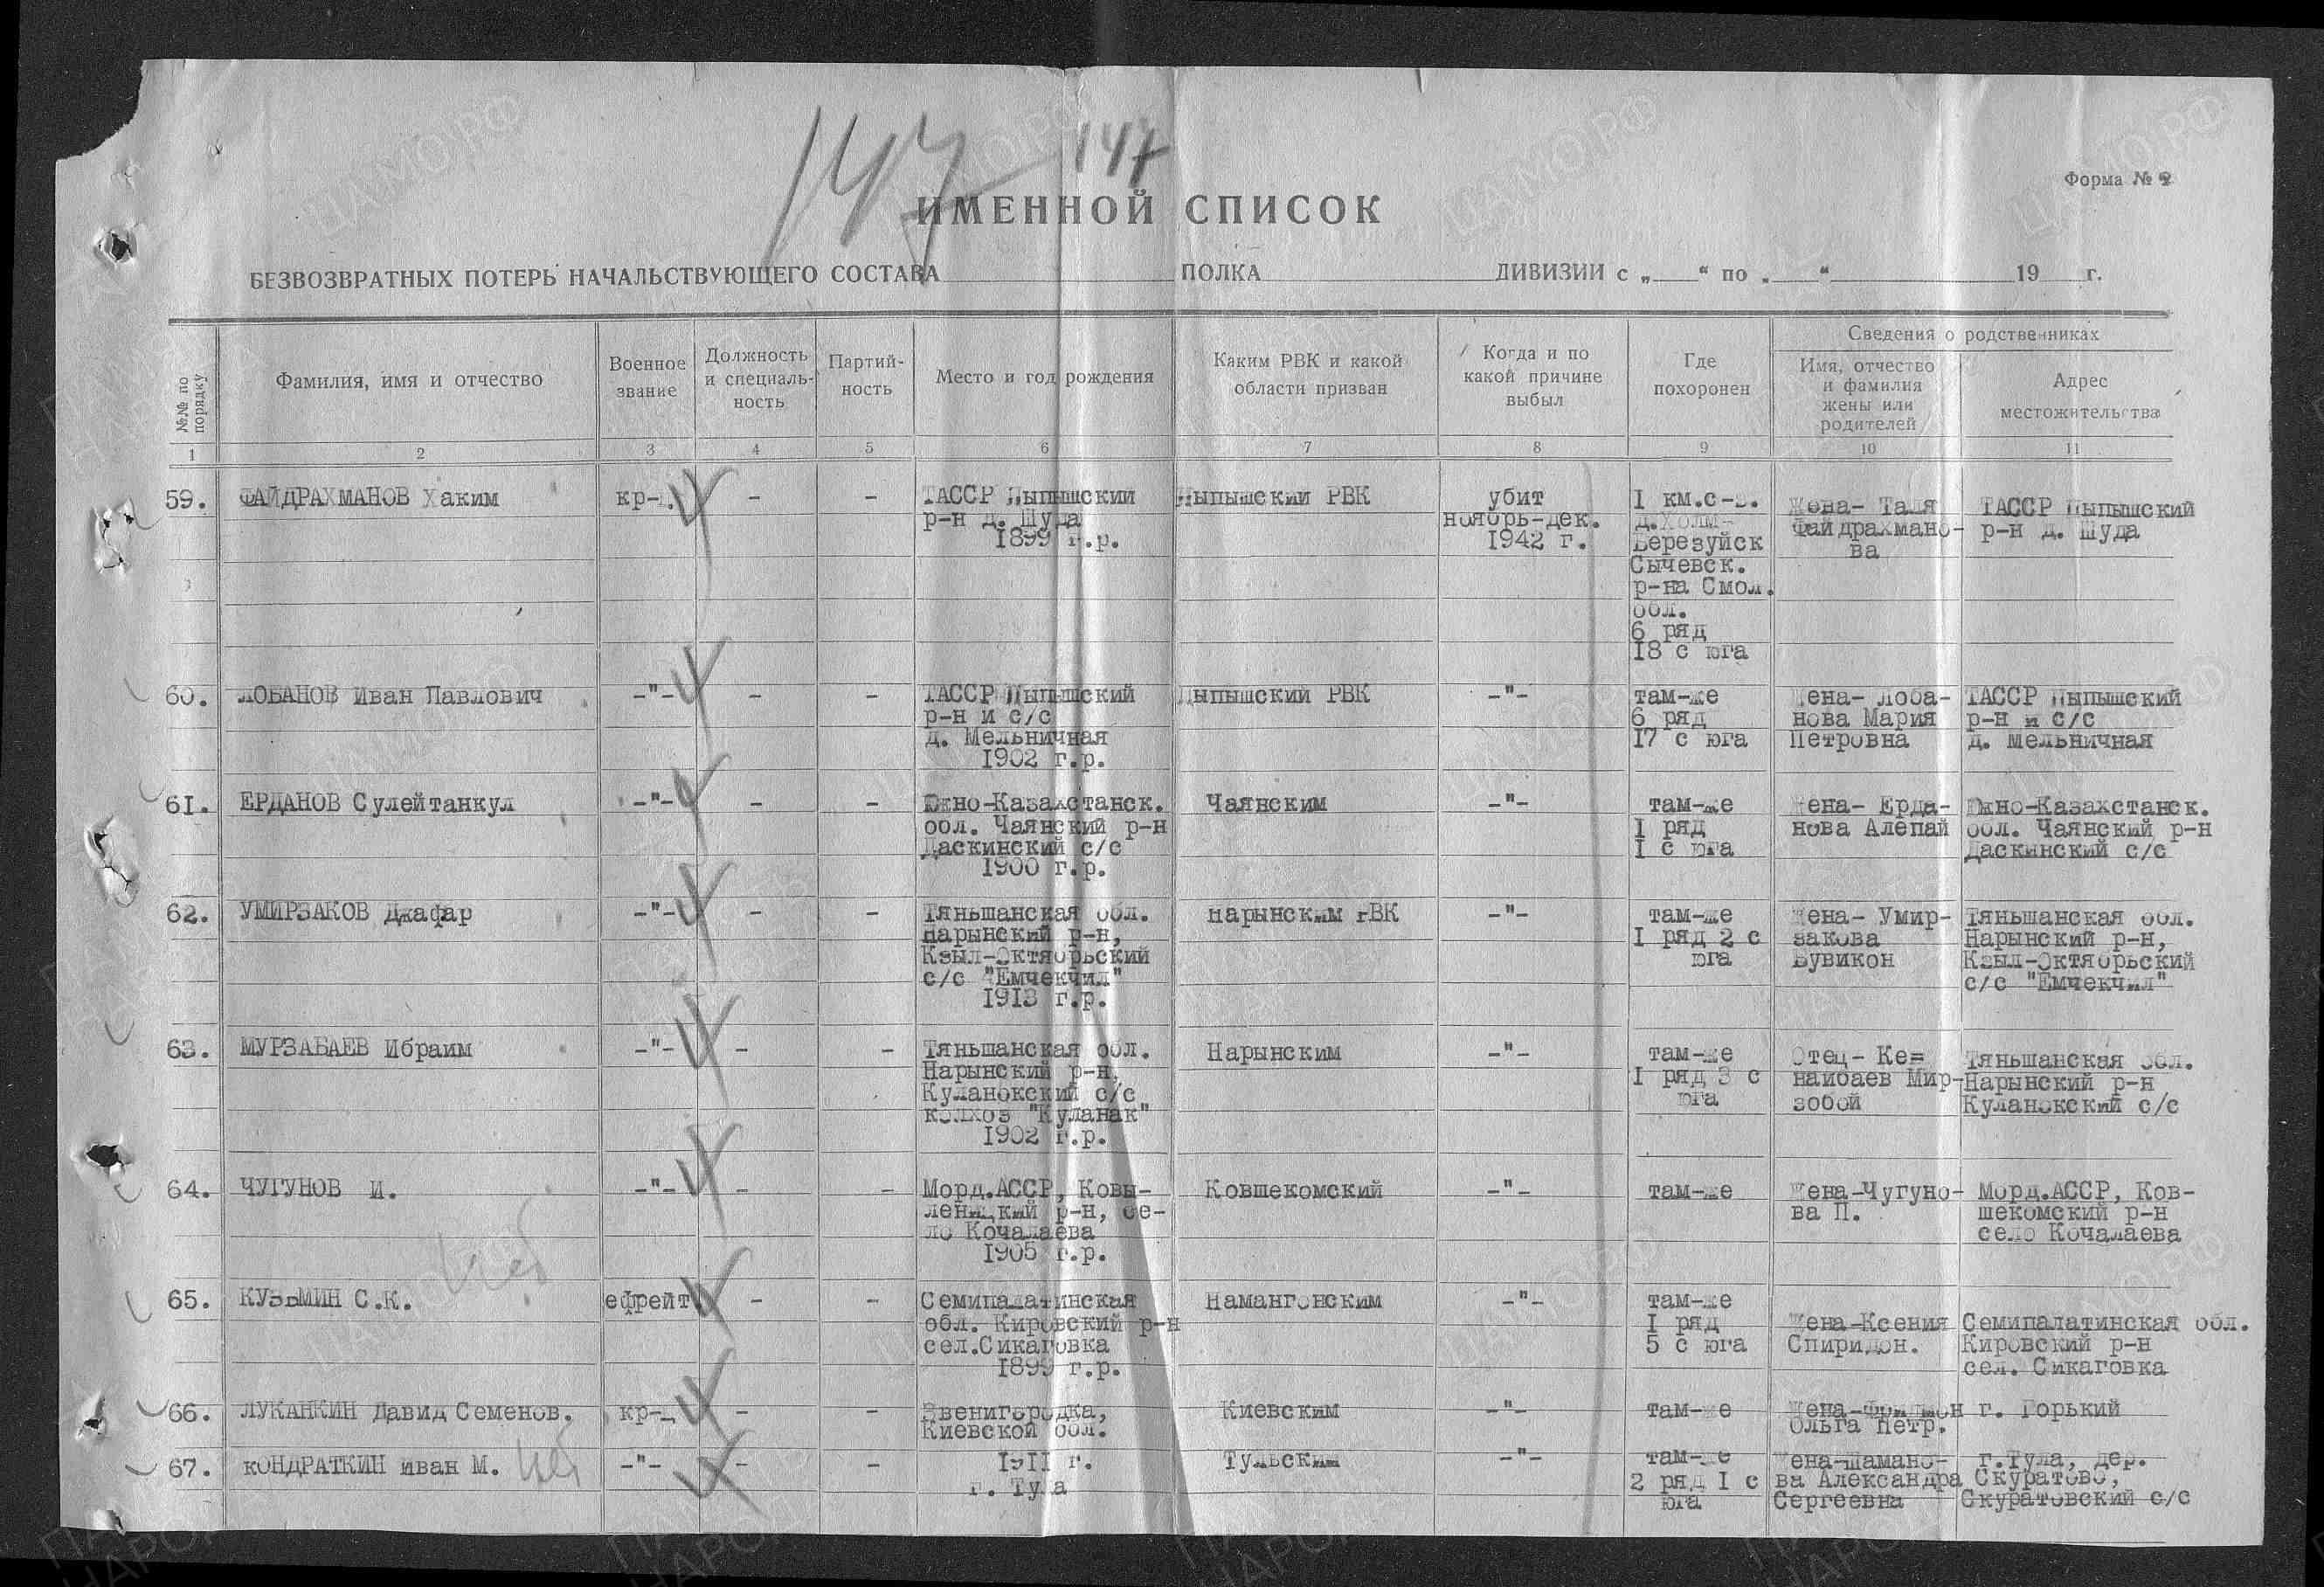 147
147
Форма № 2
ИМЕННОЙ СПИСОК
БЕЗВОЗВРАТНЫХ ПОТЕРЬ НАЧАЛЬСТВУЮЩЕГО СОСТАВА ПОЛКА ДИВИЗИИ с „ “ по „ “ 19 г.
№№ по порядку
Фамилия, имя и отчество
Военное
звание
Должность
и специаль-
ность
Партий-
ность
Место и год рождения
Каким РВК и какой
области призван
Когда и по
какой причине
выбыл
Где
похоронен
Сведения о родственниках
Имя, отчество
и фамилия
жены или
родителей
Адрес
местожительства
1 2 3 4 5 6 7 8 9 10 11
59. ФАЙДРАХМАНОВ Хаким
кр-ц
-
-
ТАССР Цыпышский
р-н д. Шуда
1899 г.р.
Цыпышский РВК
убит
ноябрь-дек.
1942 г.
I км.с-в.
д.Холм-
Березуйск
Сычевск.
р-на Смол.
обл.
6 ряд
18 с юга
Жена- Таля
Файдрахмано-
ва
ТАССР Цыпышский
р-н д. Шуда
60. ЛОБАНОВ Иван Павлович
-"-
-
-
ТАССР Цыпышский
р-н и с/с
д. Мельничная
1902 г.р.
Цыпышский РВК
-"-
там-же
6 ряд
17 с юга
Жена- Лоба-
нова Мария
Петровна
ТАССР Цыпышский
р-н и с/с
д. Мельничная
61. ЕРДАНОВ Сулейтанкул
-"-
-
-
Южно-Казахстанск.
обл. Чаянский р-н
Даскинский с/с
1900 г.р.
Чаянским
-"-
там-же
I ряд
I с юга
Жена- Ерда-
нова Алепай
Южно-Казахстанск.
обл. Чаянский р-н
Даскинский с/с
62. УМИРЗАКОВ Джафар
-"-
-
-
Тяньшанская обл.
Нарынский р-н,
Кзыл-Октябрьский
с/с "Емчекчил"
1913 г.р.
Нарынским РВК
-"-
там-же
I ряд 2 с
юга
Жена- Умир-
закова
Бувикон
Тяньшанская обл.
Нарынский р-н,
Кзыл-Октябрьский
с/с "Емчекчил"
63. МУРЗАБАЕВ Ибраим
-"-
-
-
Тяньшанская обл.
Нарынский р-н,
Куланокский с/с
колхоз "Куланак"
1902 г.р.
Нарынским
-"-
там-же
I ряд 3 с
юга
Отец- Ке=
наибаев Мир-
зобой
Тяньшанская обл.
Нарынский р-н
Куланокский с/с
64. ЧУГУНОВ И.
-"-
-
-
Морд.АССР, Ковы-
леницкий р-н, се-
ло Кочалаева
1905 г.р.
Ковшекомский
-"-
там-же
Жена-Чугуно-
ва П.
Морд.АССР, Ков-
шекомский р-н
село Кочалаева
65. КУЗЬМИН С.К.
ефрейт.
-
-
Семипалатинская
обл. Кировский р-н
сел.Сикаговка
1899 г.р.
Намангонским
-"-
там-же
I ряд
5 с юга
Жена-Ксения
Спиридон.
Семипалатинская обл.
Кировский р-н
сел. Сикаговка
66. ЛУКАНКИН Давид Семенов.
кр-ц
-
-
Звенигородка,
Киевской обл.
Киевским
-"-
там-же
Жена-
Ольга Петр.
г. Горький
67. КОНДРАТКИН Иван М.
-"-
-
-
1911 г.
г. Тула
Тульским
-"-
там-же
2 ряд I с
юга
Жена-Шамано-
ва Александра
Сергеевна
г.Тула, дер.
Скуратово,
Скуратовский с/с